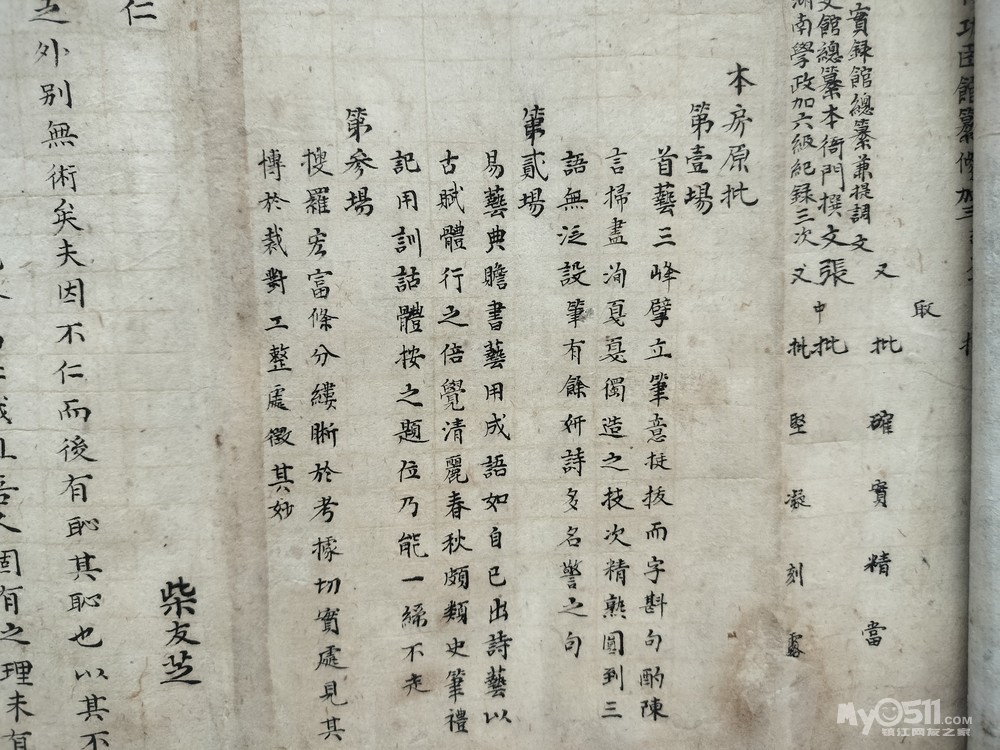 取
實録館總纂兼提調文
又批 確實精當
文館總纂本衙門撰文張
中批
湖南學政加六級紀録三次
又批 堅凝刻露
本房原批
第壹場
首藝三峰擘立筆意挺拔而字斟句酌陳
言掃盡洵戛戛獨造之技次精熟圓到三
語無泛設筆有餘妍詩多名警之句
第貳場
易藝典贍書藝用成語如自己出詩藝以
古賦體行之倍覺清麗春秋頗類史筆禮
記用訓詁體按之題位乃能一絲不走
第參場
搜羅宏富條分縷晰於考據切實處見其
博於裁對工整處徵其妙
柴友芝
仁
之外別無術矣夫因不仁而後有恥其恥也以其不
固有之理未有
My0511.COM
镇江网友之家